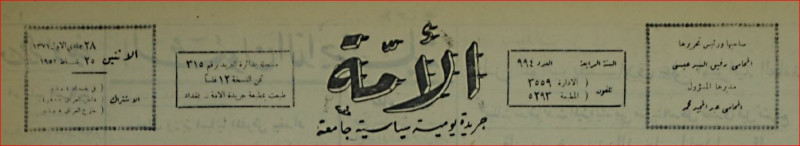 صاحبها ورئيس تحريرها
المحامي رفيق السيد عيسى
مديرها المسؤول
المحامي عبد المجيد محمد
السنة الرابعة العدد ٩٩٤
تلفون ( الادارة ٣٥٥٩
( المطبعة ٥٢٩٣
الأمّة
جريدة يومية سياسية جامعة
مسجلة بدائرة البريد رقم ٣١٥
ثمن النسخة ١٢ فلساً
طبعت بمطبعة جريدة الامة - بغداد
الاثنين
٢٨ جمادي الاول ١٣٧١
٢٥ شباط ١٩٥٢
الاشتراك